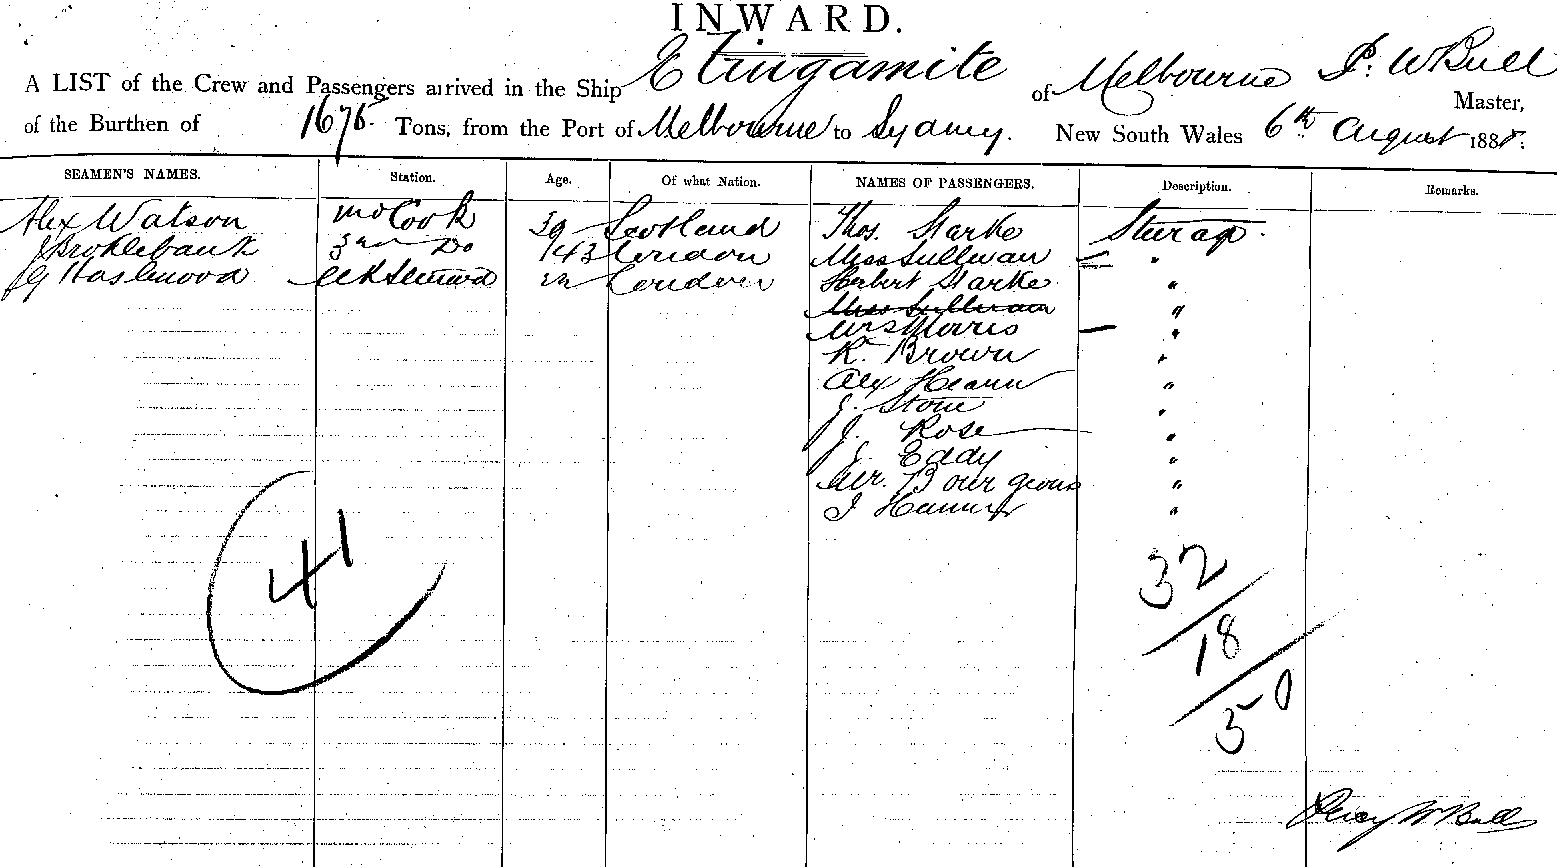 INWARD.
A LIST of the Crew and Passengers arrived in the Ship Elingamite of Melbourne P. W Bull Master,
of the Burthen of 1675 Tons, from the Port of Melbourne to Sydney. New South Wales 6th August 1888.
SEAMEN'S NAMES. Station. Age. Of what Nation. NAMES OF PASSENGERS. Description. Remarks.
Alex Watson Cook 39 Scotland Thos. Starke Steerage.
J Brocklebank Do London Miss Sullivan "
G Haslewood London Herbert Starke "
Miss Sullivan "
Mrs Morris "
R. Brown "
Alex "
J. Stone "
J. Rose "
J. Eddy "
Mr. "
J "
41
32
18
50
W Bull